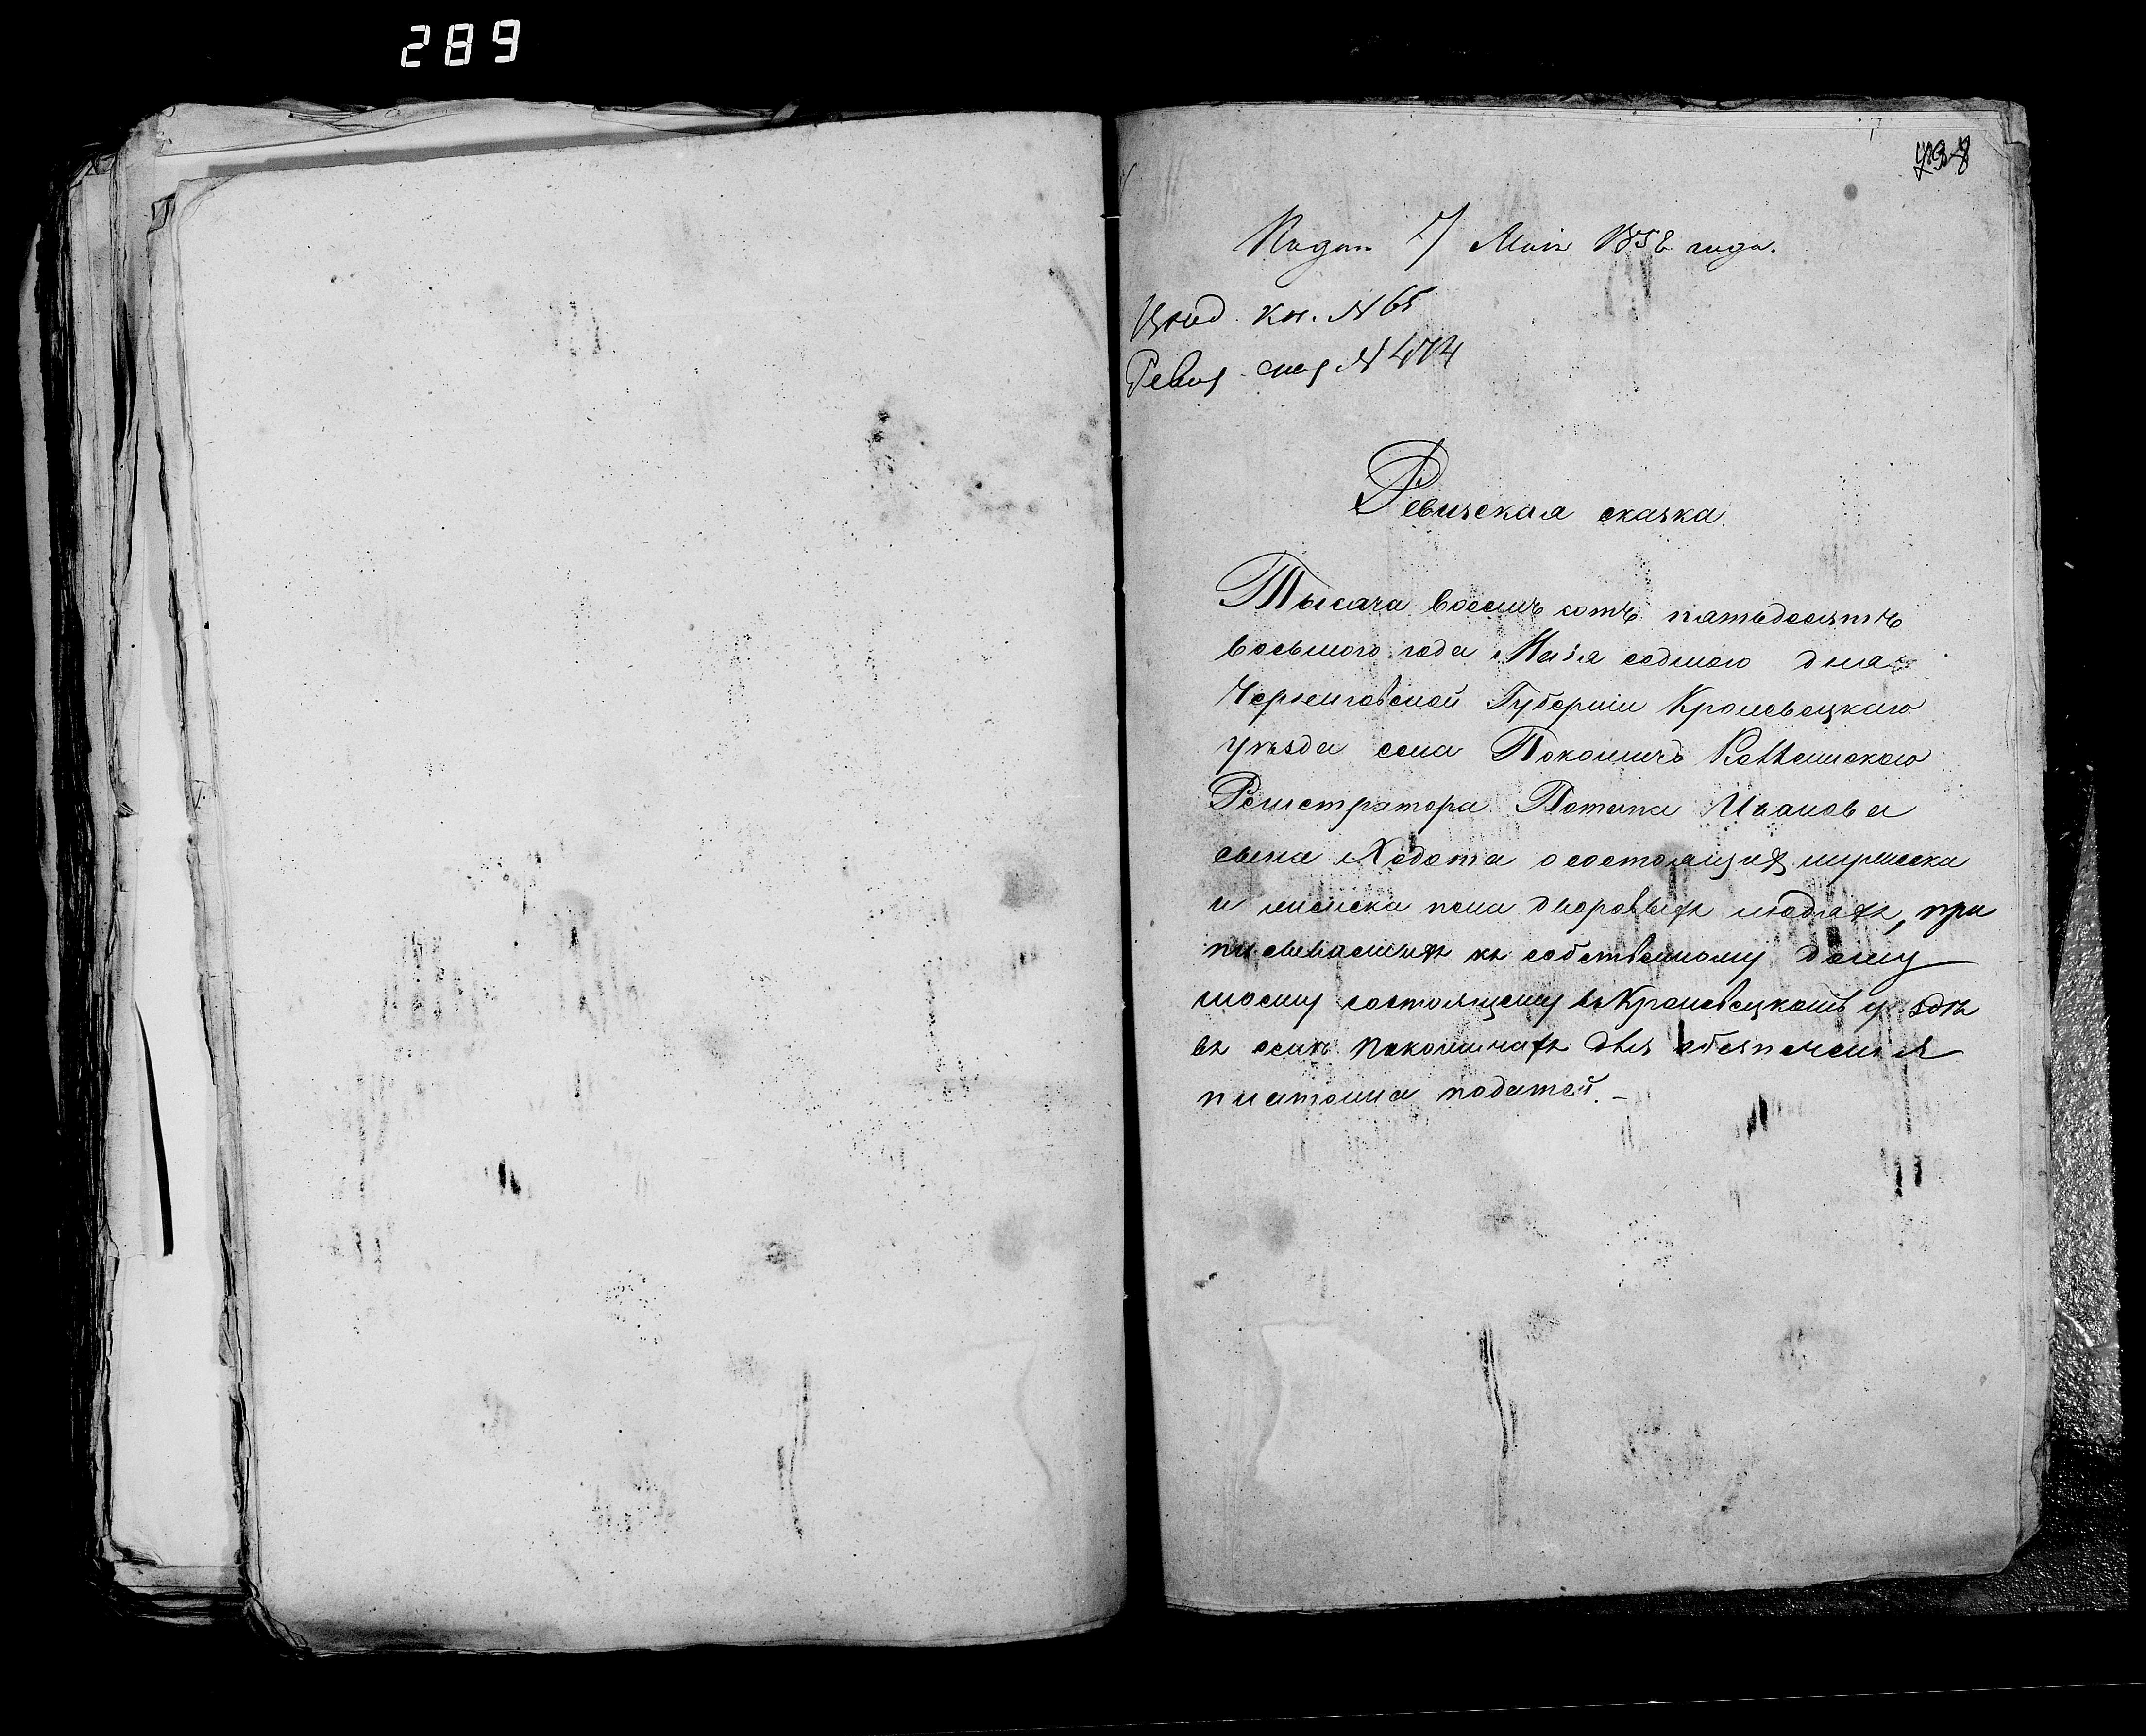 289
738
Подан 7 Маія 1858 года.
Вход. кн. №65
Ревиз. сказ №474
Ревизская сказка.
Тысяча восемь сотъ патьдесятъ
восьмого года Маія седмого дня
Черниговской Губерніи Кролевецкаго
уѣзда села Покошичъ Коллежскаго
Регистратора Потапа Иванова
сына Ходота о состоящихъ мужеска
и женска пола дворовыхъ людяхъ, при
писывасмыхъ къ собственному дому
моему состоящему въ Кролевецкомъ уѣздѣ
въ селѣ Покошичахъ для обезпеченія
платежа податей. -